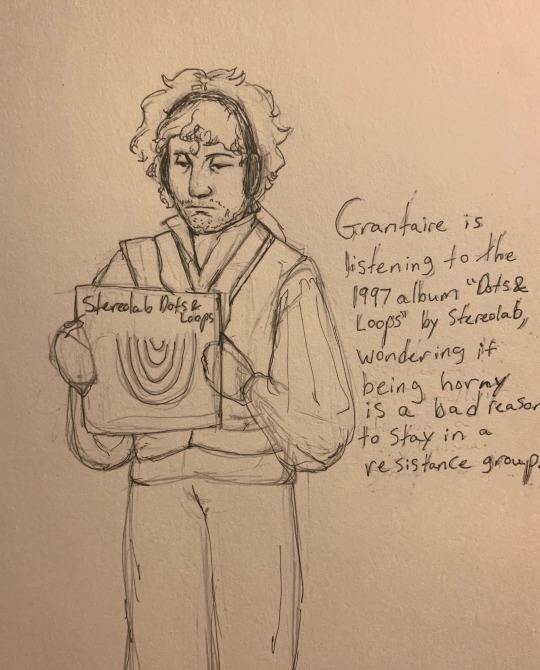 Stereolab Dots &
Loops
Grantaire is
listening to the
1997 album "Dots &
Loops" by Stereolab,
wondering if
being horny
is a bad reason
to stay in a
resistance group.